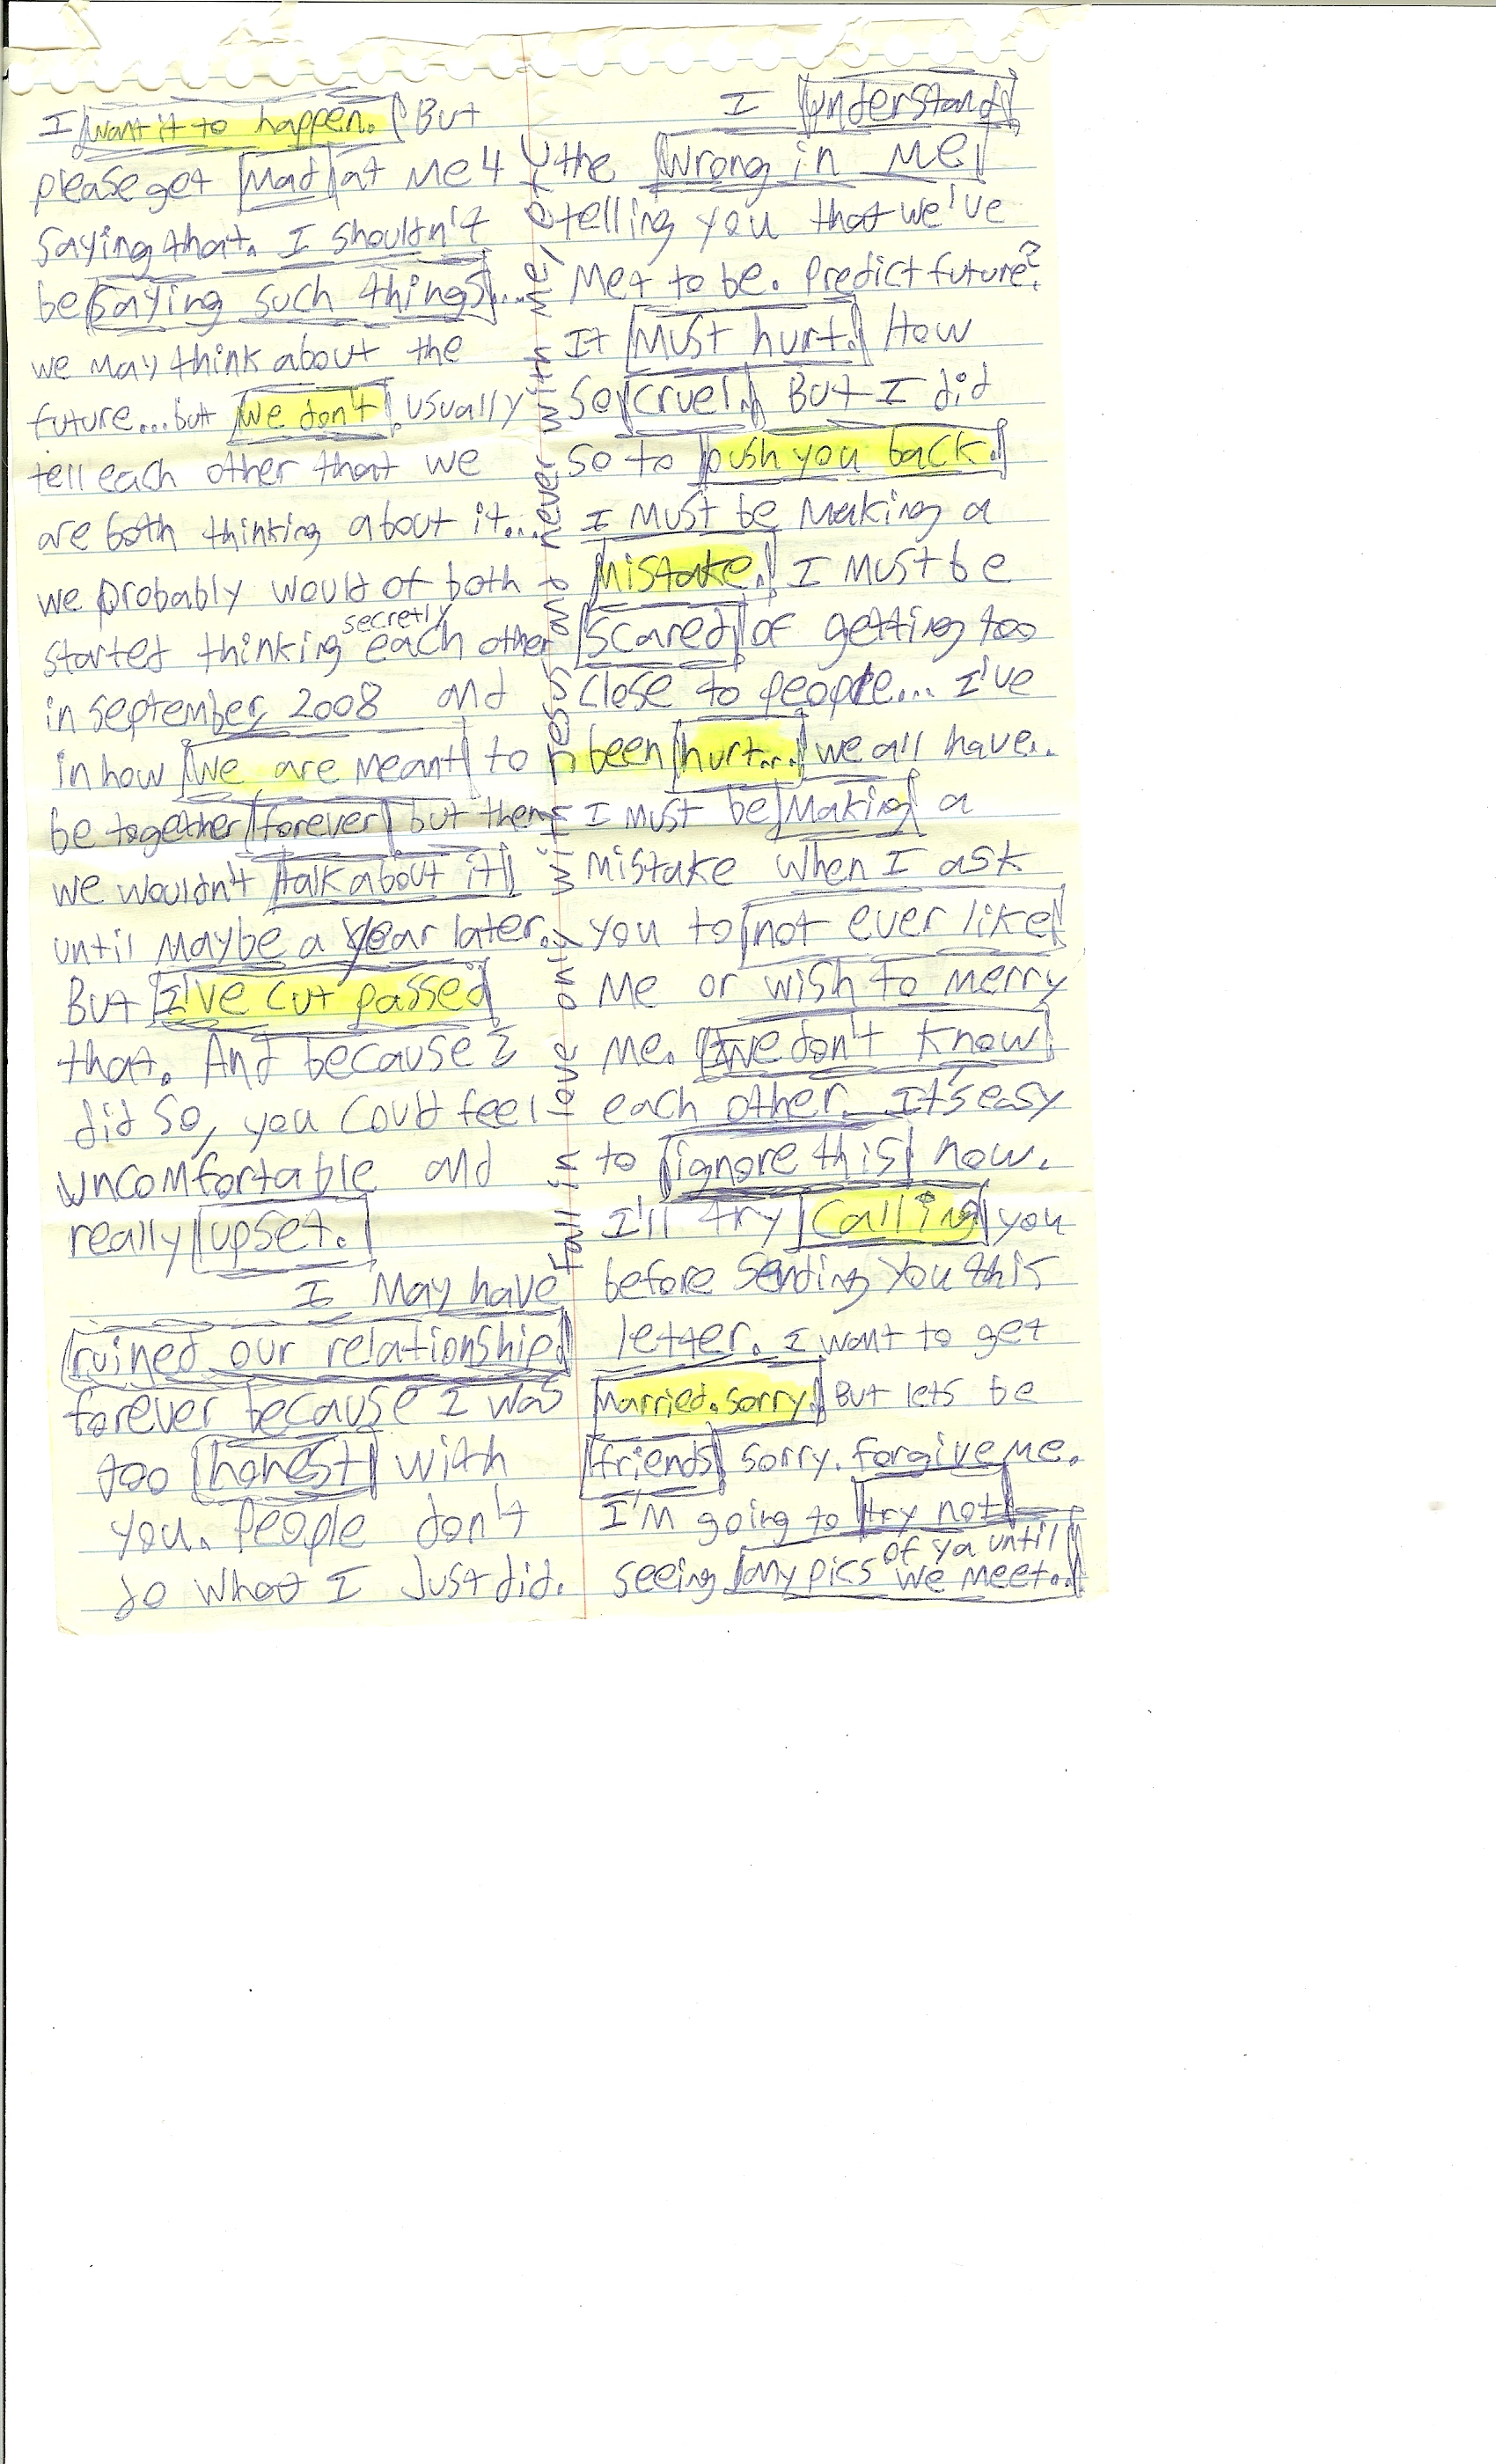 I want it to happen. But
please get mad at me 4
saying that. I shouldn't
be saying such things...
we may think about the
future...but we don't usually
tell each other that we
are both thinking about it...
we probably would of both
started thinking secretly each other
in september, 2008 and
in how we are meant to
be together forever but then
we wouldn't talk about it
until maybe a year later.
But I've cut passed
that. And because I
did so, you could feel
uncomfortable and
really upset.
I may have
ruined our relationship
forever because I was
too honest with
you. People don't
do what I just did.
fall in love only with Jesus and never with me, ok?
I understand
the wrong in me
telling you that we've
met to be. Predict future?
It must hurt. How
so cruel. But I did
so to push you back.
I must be making a
mistake. I must be
scared of getting too
close to people... I've
been hurt... we all have..
I must be making a
mistake when I ask
you to not ever like
me or wish to merry
me. we don't know
each other. It's easy
to ignore this now.
I'll try calling you
before sending you this
letter. I want to get
married. sorry. But lets be
friends sorry. forgive me.
I'm going to try not
seeing any pics of ya until we meet..